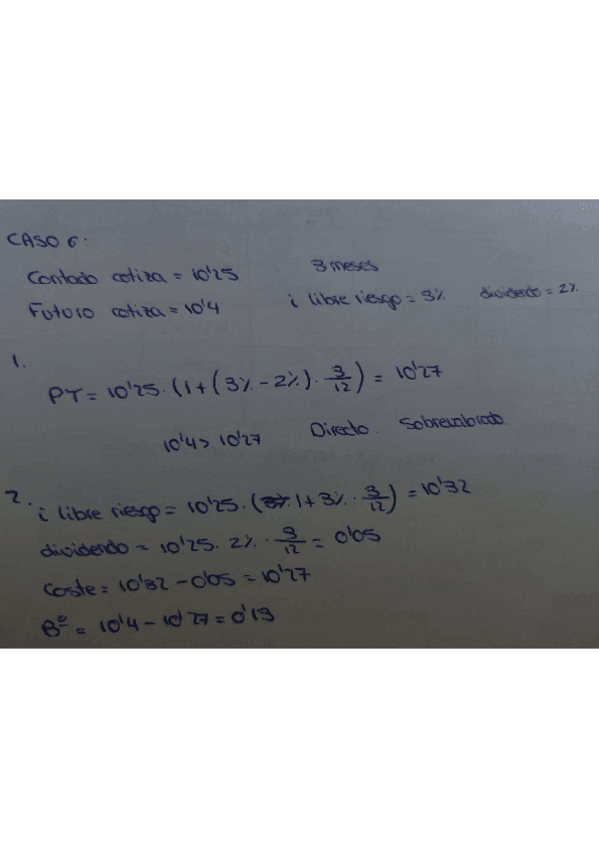 CASO 6:
Contado cotiza = 10'25 3 meses
Futuro cotiza = 10'4 i libre riesgo = 3% dividendo = 2%
1.
PT = 10'25 · (1 + (3% - 2%) · 3/12) = 10'27
10'4 > 10'27 Directo. Sobrevalorado
2.
i libre riesgo = 10'25 · (1 + 3% · 3/12) = 10'32
dividendo = 10'25 · 2% · 3/12 = 0'05
Coste = 10'32 - 0'05 = 10'27
Bº = 10'4 - 10'27 = 0'13